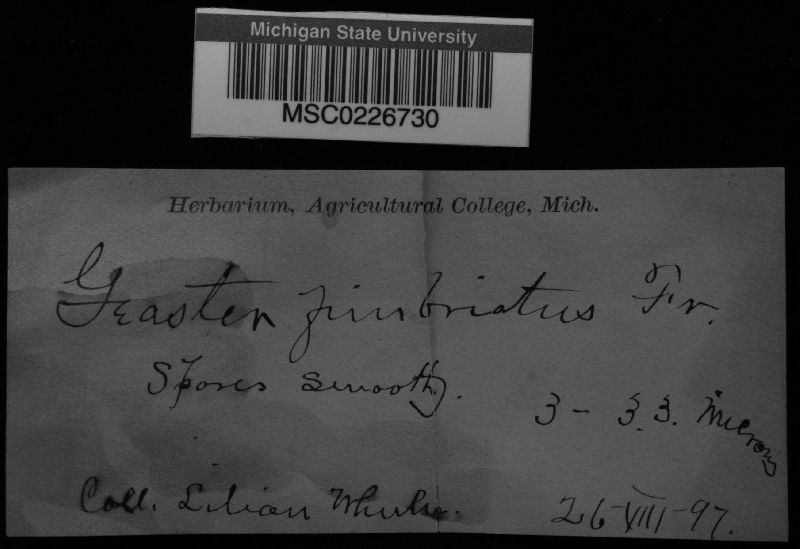 Michigan State University
MSC0226730
Herbarium, Agricultural College, Mich.
Geaster fimbriatus Fr.
Spores smooth.
3 - 3.3. Microns
Coll. Lilian Wheeler.
26-VIII-97.